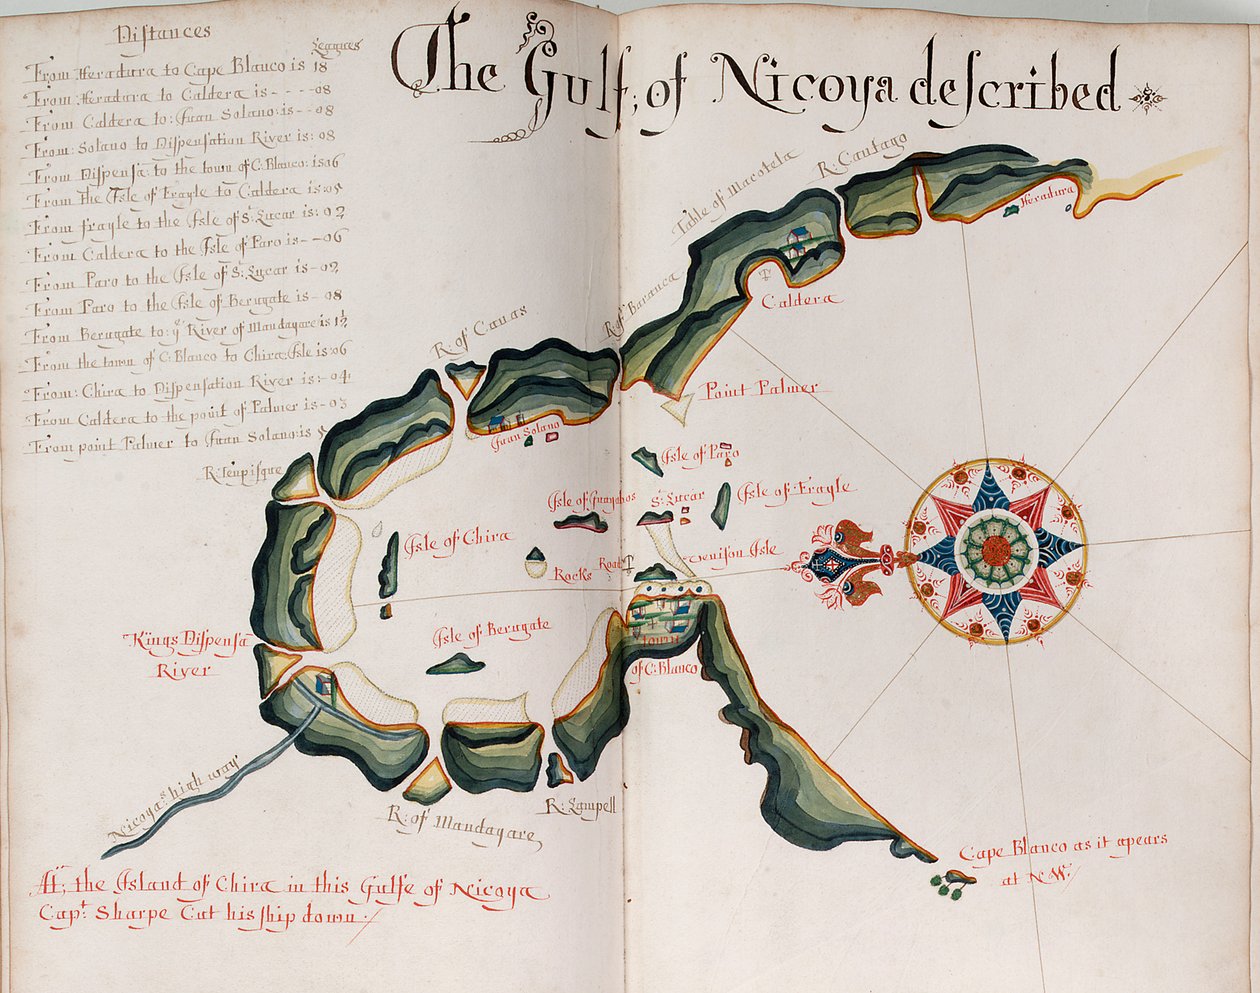 Distances
Leagues
From Heradura to Cape Blanco is 18
From Heradura to Caldera is - - - - 08
From Caldera to: Juan Solano: is - - 08
From: Solano to Dispensation River is: 08
From Dispensa: to the town of C: Blanco: is 06
From the Isle of Frayle to Caldera is: 05
From frayle to the Isle of St: Lucar is: 02
From Caldera to the Isle of Paro is - - 06
From Paro to the Isle of St: Lucar is - 02
From Paro to the Isle of Berugate is - 08
From Berugate to: ye River of Mandagare is 1½
From the town of C: Blanco to Chira: Isle is: 06
From: Chira to Dispensation River is: - 04
From Caldera to the point of Palmer is - 03
From point Palmer to Juan Solano: is
The Gulf, of Nicoya described
Table of Macotela
R: Cantago
Heradura
Caldera
R: of Baranca
R: of Canas
Point Palmer
Juan Solano
R: Tenpisque
Isle of Paro
Isle of Guayabos
St: Lucar
Isle of Frayle
Isle of Chira
Rocks
Road
Venison Isle
Isle of Berugate
Kings Dispensa
River
town
of C: Blanco
Nicoyas high way
R: of Mandagare
R: Lampell
Cape Blanco as it apears
at N.W:
At, the Island of Chira in this Gulfe of Nicoya
Capt: Sharpe Cut his ship down: